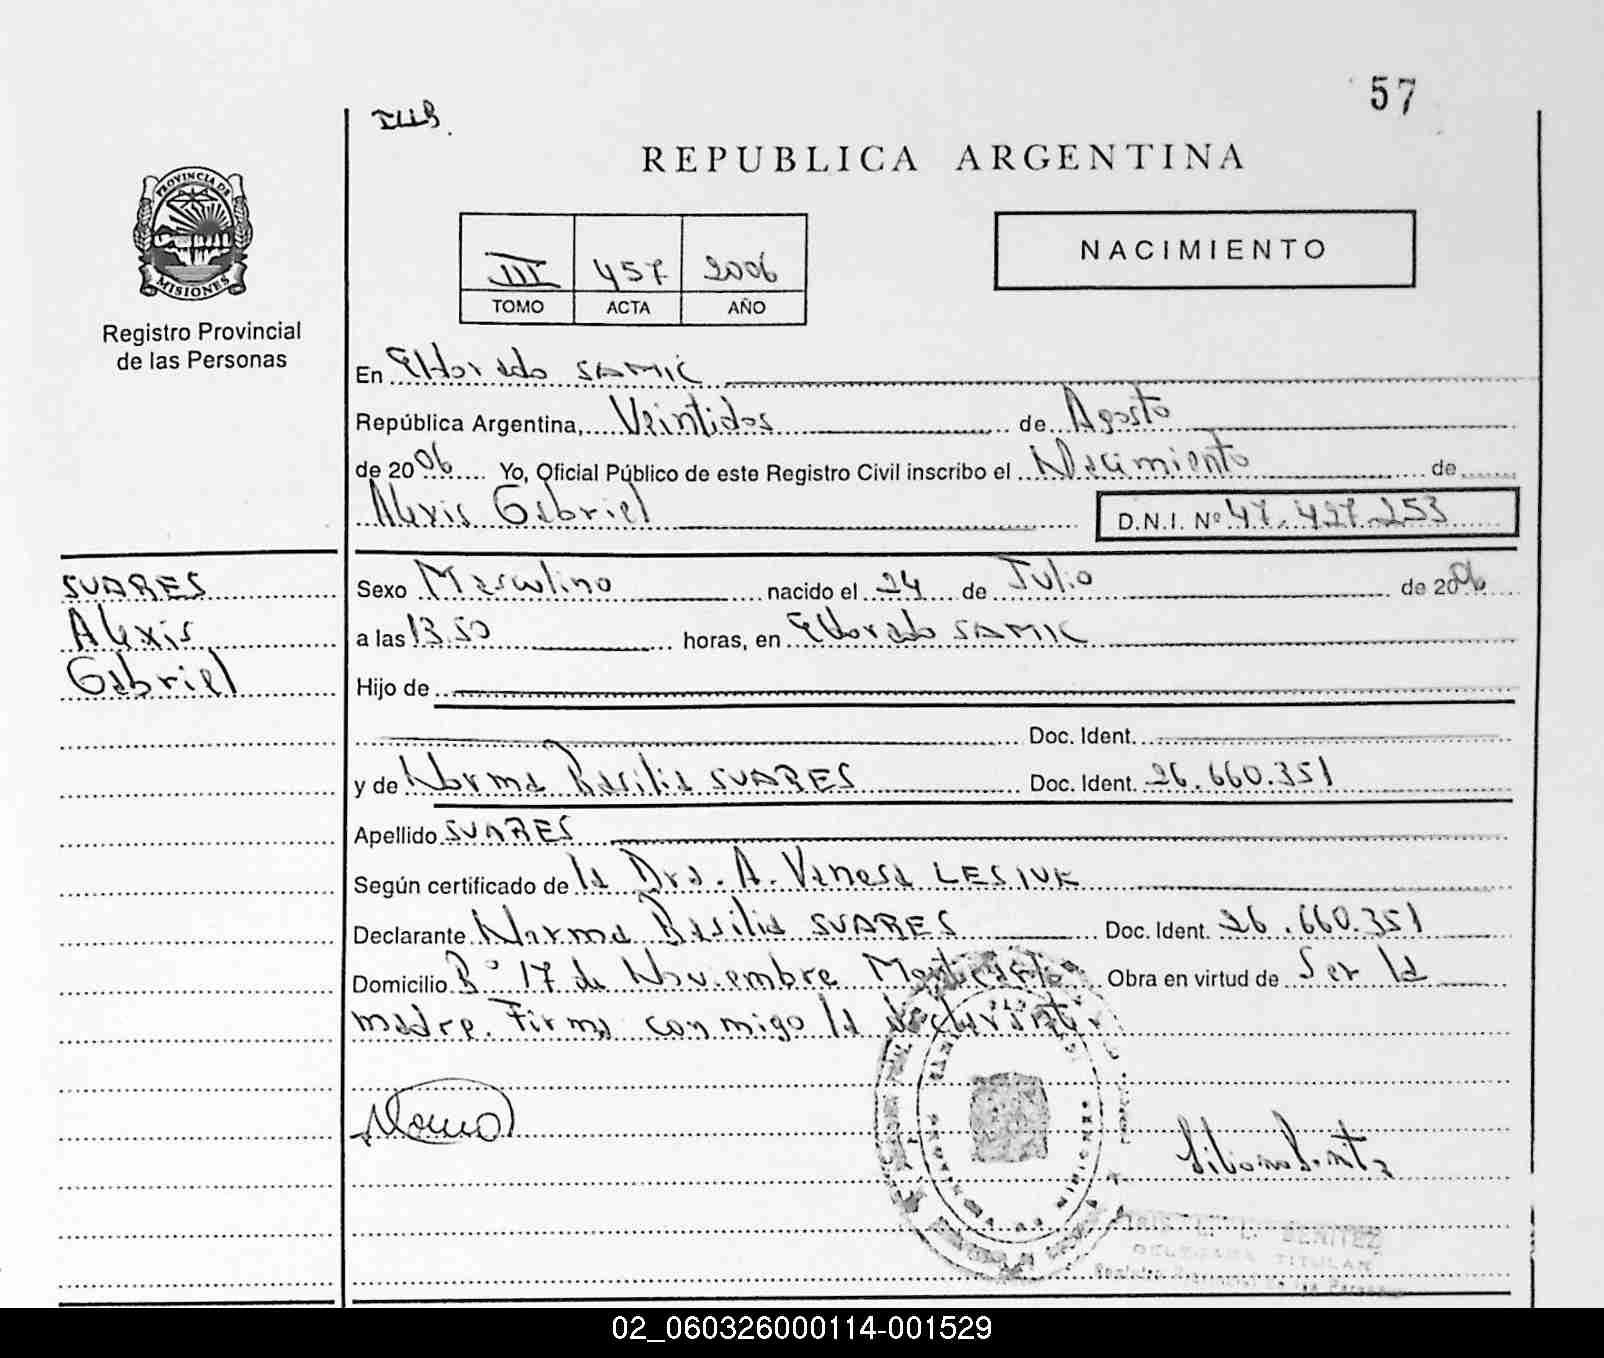 57
REPUBLICA ARGENTINA
PROVINCIA DE
MISIONES
Registro Provincial
de las Personas
III 457 2006
TOMO ACTA AÑO
NACIMIENTO
En Eldorado SAMIC
República Argentina, Veintidos de Agosto
de 2006 Yo, Oficial Público de este Registro Civil inscribo el Nacimiento de
Alexis Gabriel D.N.I. Nº 47.457.253
SUARES
Alexis
Gabriel
Sexo Masculino nacido el 24 de Julio de 2006
a las 13.50 horas, en Eldorado SAMIC
Hijo de
Doc. Ident.
y de Norma Basilia SUARES Doc. Ident. 26.660.351
Apellido SUARES
Según certificado de la Dra. A. Vanesa LESIUK
Declarante Norma Basilia SUARES Doc. Ident. 26.660.351
Domicilio Bº 17 de Noviembre Montecarlo Obra en virtud de Ser la
madre. Firma conmigo la declarante.
BENITEZ
DELEGADA TITULAR
Registro Provincial de las Personas
02_060326000114-001529